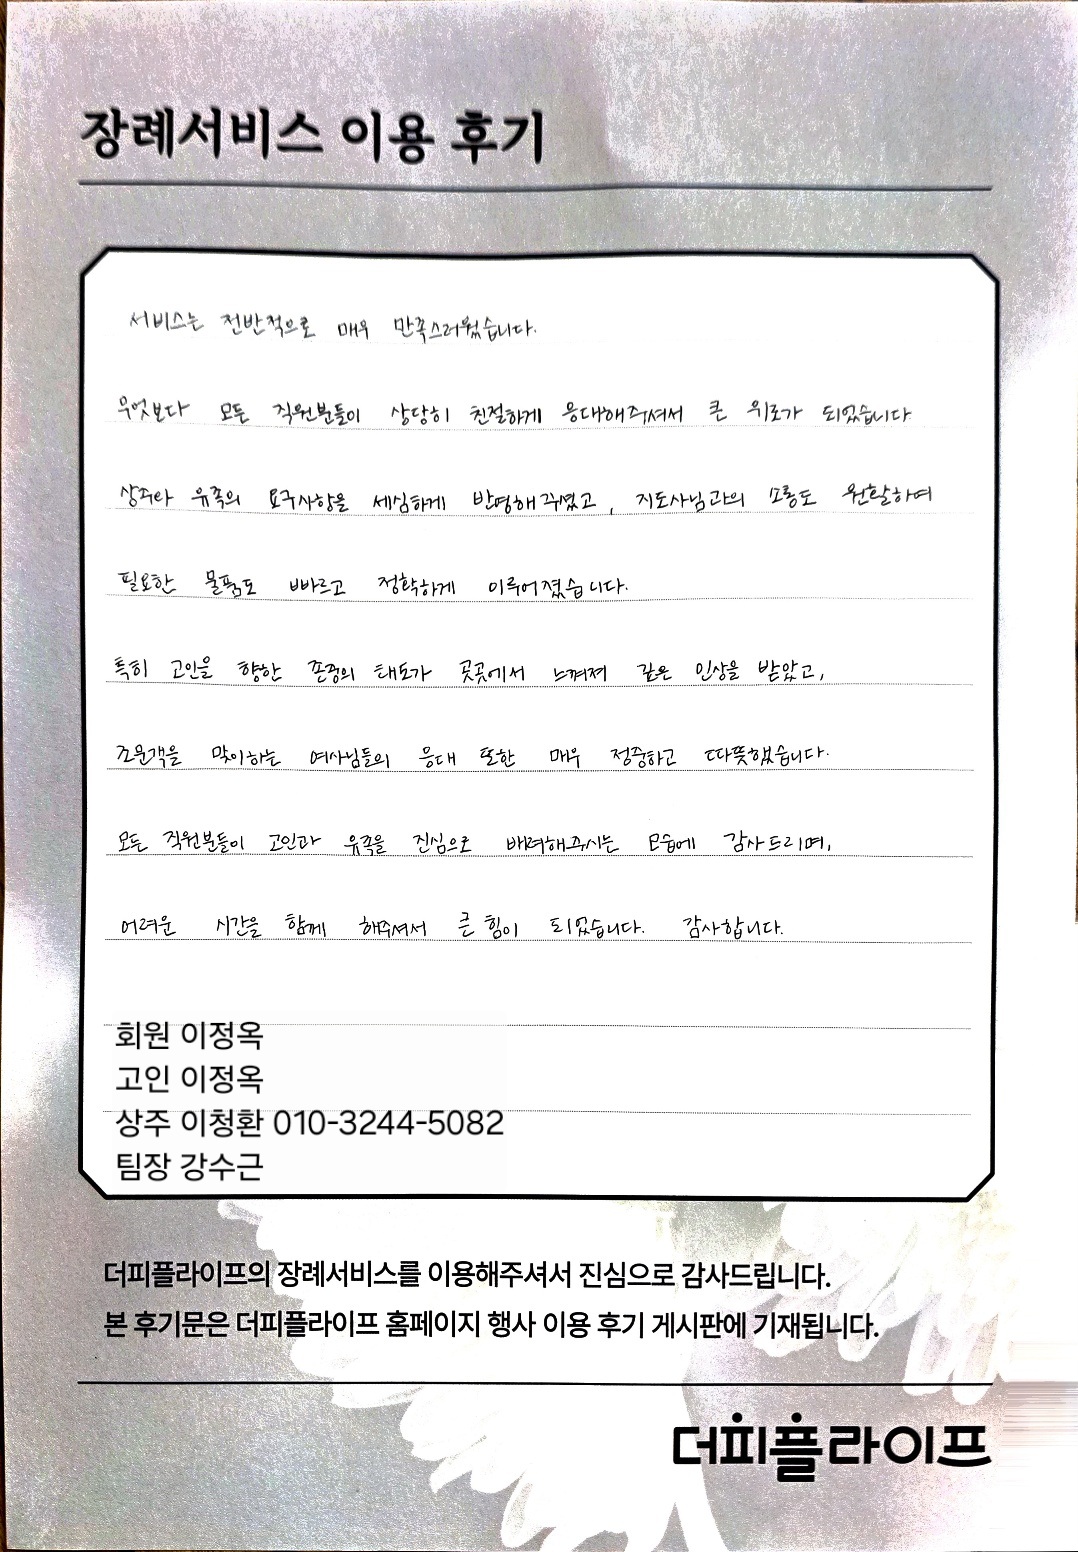 장례서비스 이용 후기
서비스는 전반적으로 매우 만족스러웠습니다.
무엇보다 모든 직원분들이 상당히 친절하게 응대해주셔서 큰 위로가 되었습니다
상주와 유족의 요구사항을 세심하게 반영해 주셨고, 지도사님과의 소통도 원활하여
필요한 물품도 빠르고 정확하게 이루어졌습니다.
특히 고인을 향한 존중의 태도가 곳곳에서 느껴져 깊은 인상을 받았고,
조문객을 맞이하는 여사님들의 응대 또한 매우 정중하고 따뜻했습니다.
모든 직원분들이 고인과 유족을 진심으로 배려해주시는 모습에 감사드리며,
어려운 시간을 함께 해주셔서 큰 힘이 되었습니다. 감사합니다.
회원 이정옥
고인 이정옥
상주 이청환 010-3244-5082
팀장 강수근
더피플라이프의 장례서비스를 이용해주셔서 진심으로 감사드립니다.
본 후기문은 더피플라이프 홈페이지 행사 이용 후기 게시판에 기재됩니다.
더피플라이프